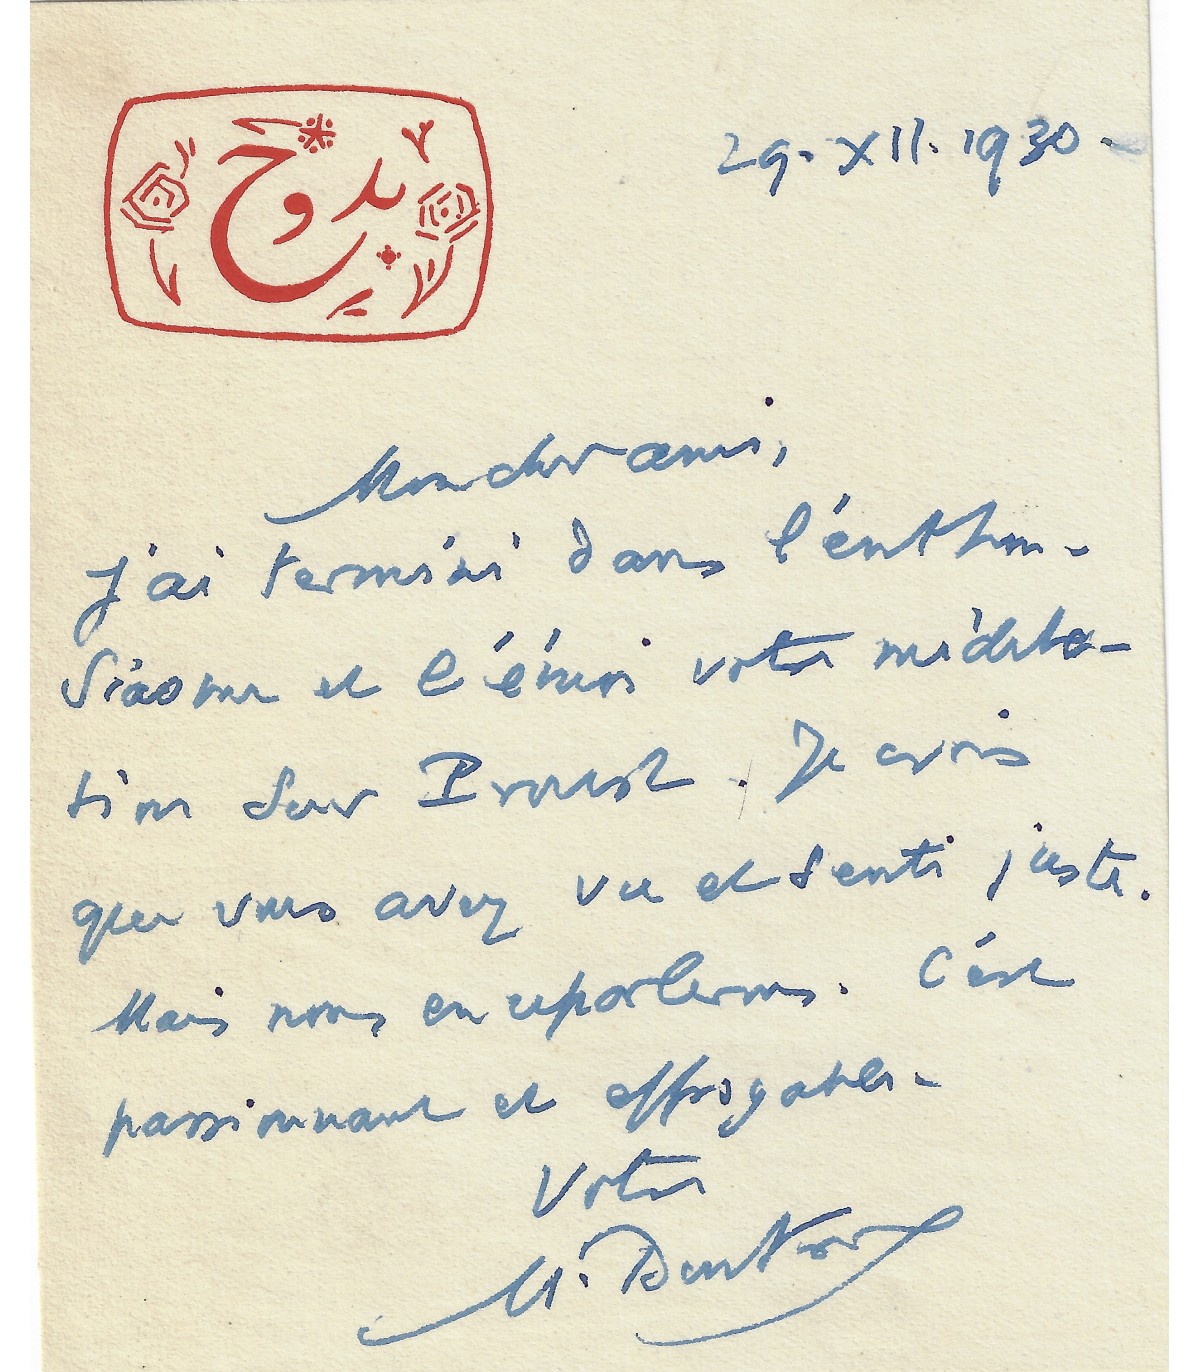 بدوح
29. XII. 1930.
Mon cher ami,
J'ai terminé dans l'enthou-
siasme et l'émoi votre médita-
tion sur Proust. Je crois
que vous avez vu et senti juste.
Mais nous en reparlerons. C'est
passionnant et effroyable.
Votre